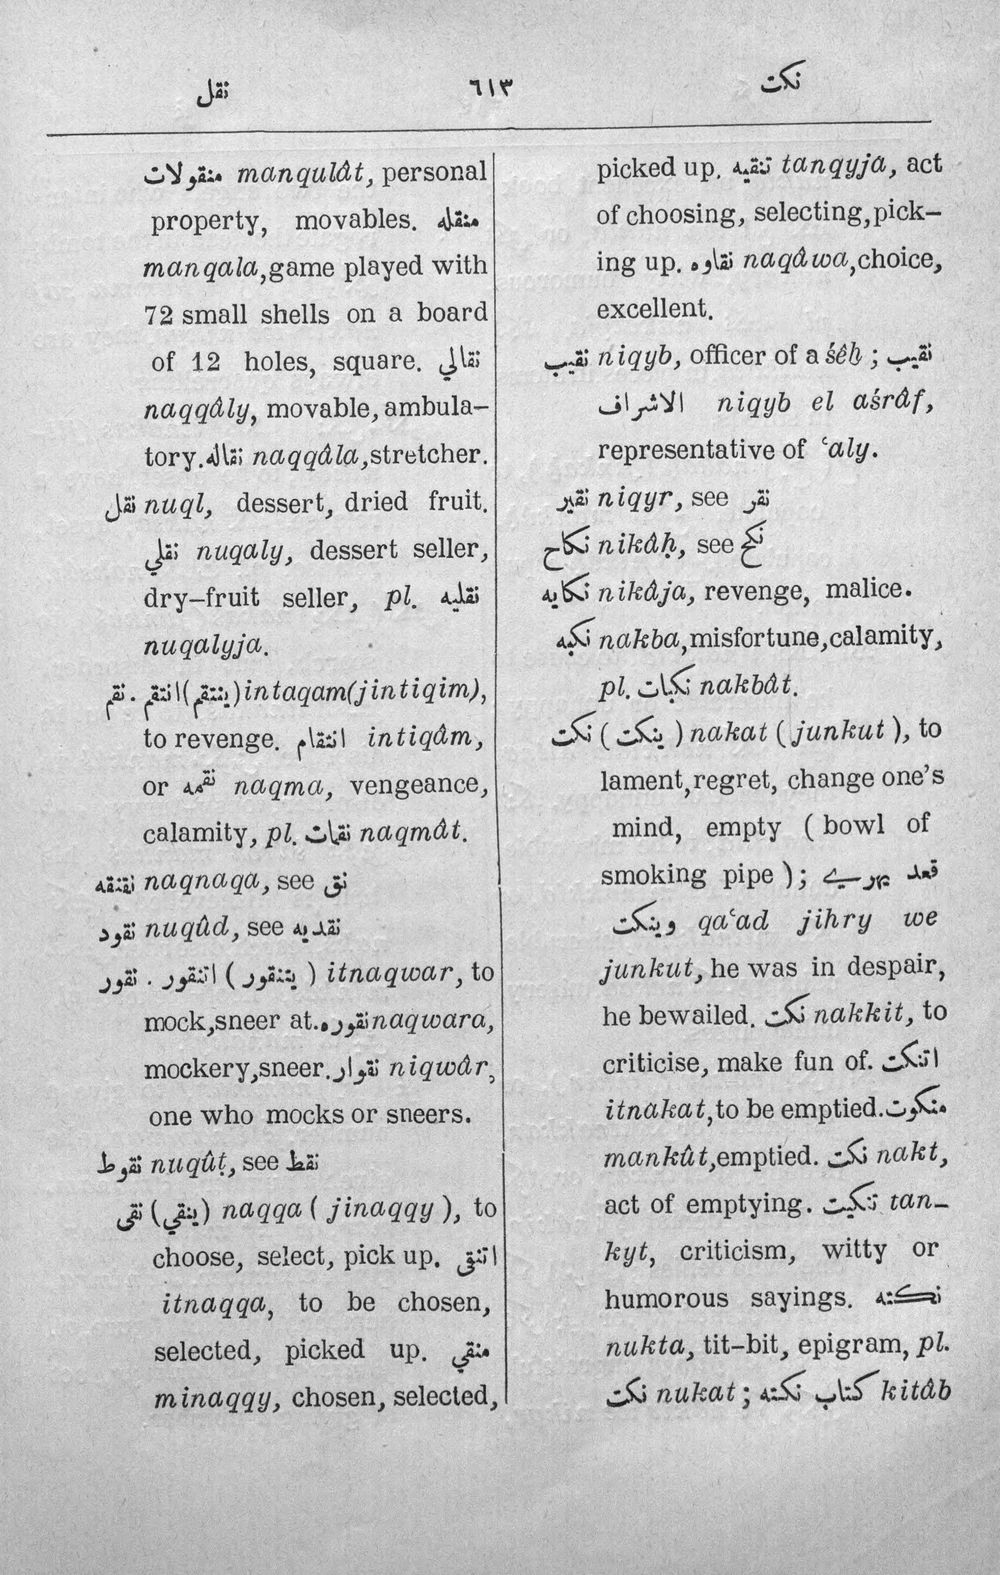 نقل ٦١٣ نكت
منقولات manqulât, personal
property, movables. منقله
manqala, game played with
72 small shells on a board
of 12 holes, square. نقالي
naqqâly, movable, ambula–
tory. نقاله naqqâla, stretcher.
نقل nuql, dessert, dried fruit.
نقلي nuqaly, dessert seller,
dry–fruit seller, pl. نقليه
nuqalyja.
نقم . انتقم (ينتقم) intaqam (jintiqim),
to revenge. انتقام intiqâm,
or نقمه naqma, vengeance,
calamity, pl. نقمات naqmât.
نقنقه naqnaqa, see نق
نقود nuqûd, see نقديه
نقور . اتنقور ( يتنقور ) itnaqwar, to
mock, sneer at. نقوره naqwara,
mockery, sneer. نقوار niqwâr,
one who mocks or sneers.
نقوط nuqûṭ, see نقط
نقى (ينقي) naqqa ( jinaqqy ), to
choose, select, pick up. اتنقى
itnaqqa, to be chosen,
selected, picked up. منقي
minaqqy, chosen, selected,
picked up. تنقيه tanqyja, act
of choosing, selecting, pick–
ing up. نقاوه naqâwa, choice,
excellent.
نقيب niqyb, officer of a śêḫ ; نقيب
الاشراف niqyb el aśrâf,
representative of ʿaly.
نقير niqyr, see نقر
نكاح nikâḥ, see نكح
نكايه nikâja, revenge, malice.
نكبه nakba, misfortune, calamity,
pl. نكبات nakbât.
نكت ( ينكت ) nakat ( junkut ), to
lament, regret, change one's
mind, empty ( bowl of
smoking pipe ); قعد يهري
وينكت qaʿad jihry we
junkut, he was in despair,
he bewailed. نكت nakkit, to
criticise, make fun of. اتنكت
itnakat, to be emptied. منكوت
mankût, emptied. نكت nakt,
act of emptying. تنكيت tan–
kyt, criticism, witty or
humorous sayings. نكته
nukta, tit–bit, epigram, pl.
نكت nukat ; كتاب نكته kitâb